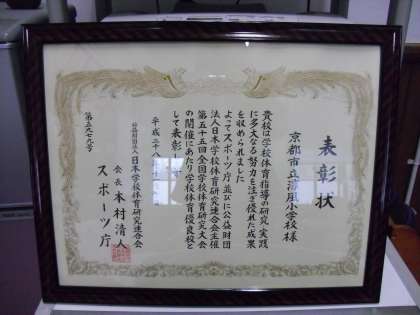 表彰状
京都市立 風小学校様
貴校は学校体育指導の研究 実践
に多大なる努力を注ぎ優れた成果
を収められました
よってスポーツ庁並びに公益財団
法人日本学校体育研究連合会主催
第五十五回全国学校体育研究大会
の開催にあたり学校体育優良校と
して表彰し
平成二十八年
公益財団法人 日本学校体育研究連合会
会長 本村清人
スポーツ庁